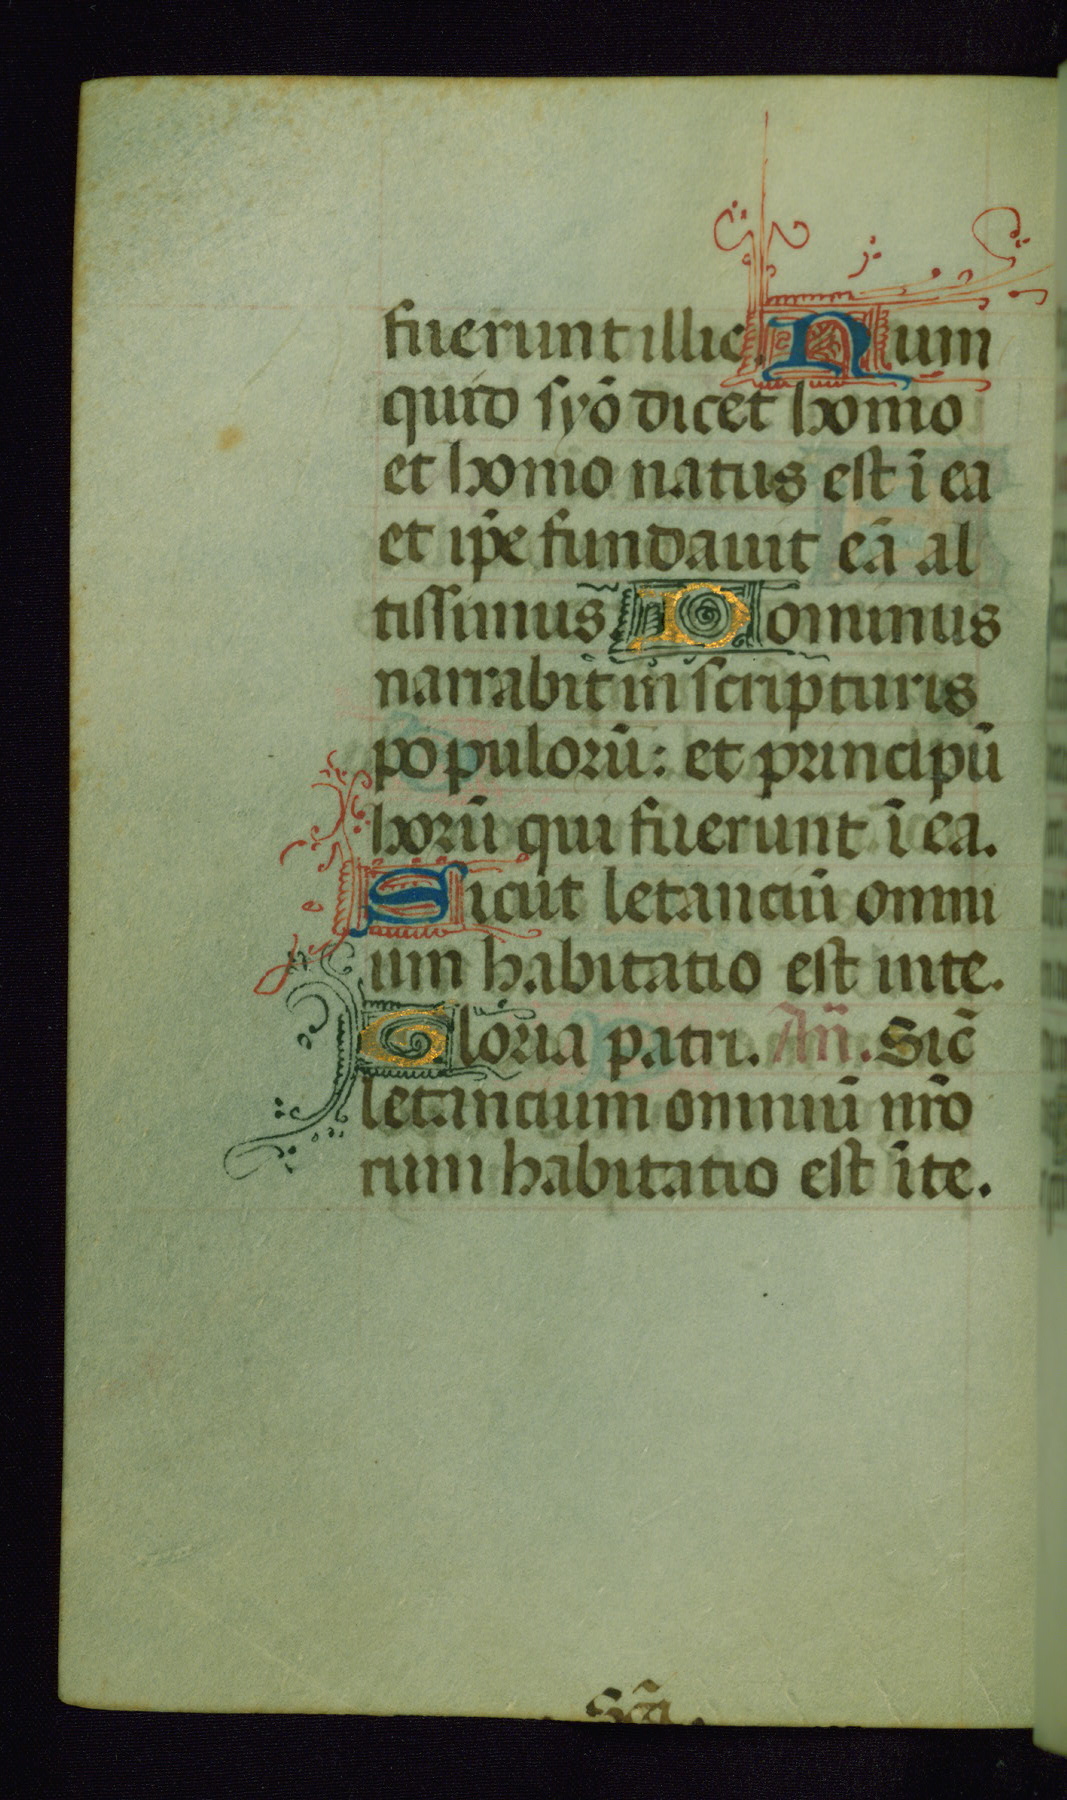 fuerunt illic. Num
quid syō dicet homo
et homo natus est ī ea
et ip̄e fundauit eā al
tissimus Dominus
narrabit in scripturis
populorū: et principū
horū qui fuerunt ī ea.
Sicut letanciū omni
um habitatio est inte.
Gloria patri. An̄. Sic̄
letancium omniū nr̄o
rum habitatio est īte.